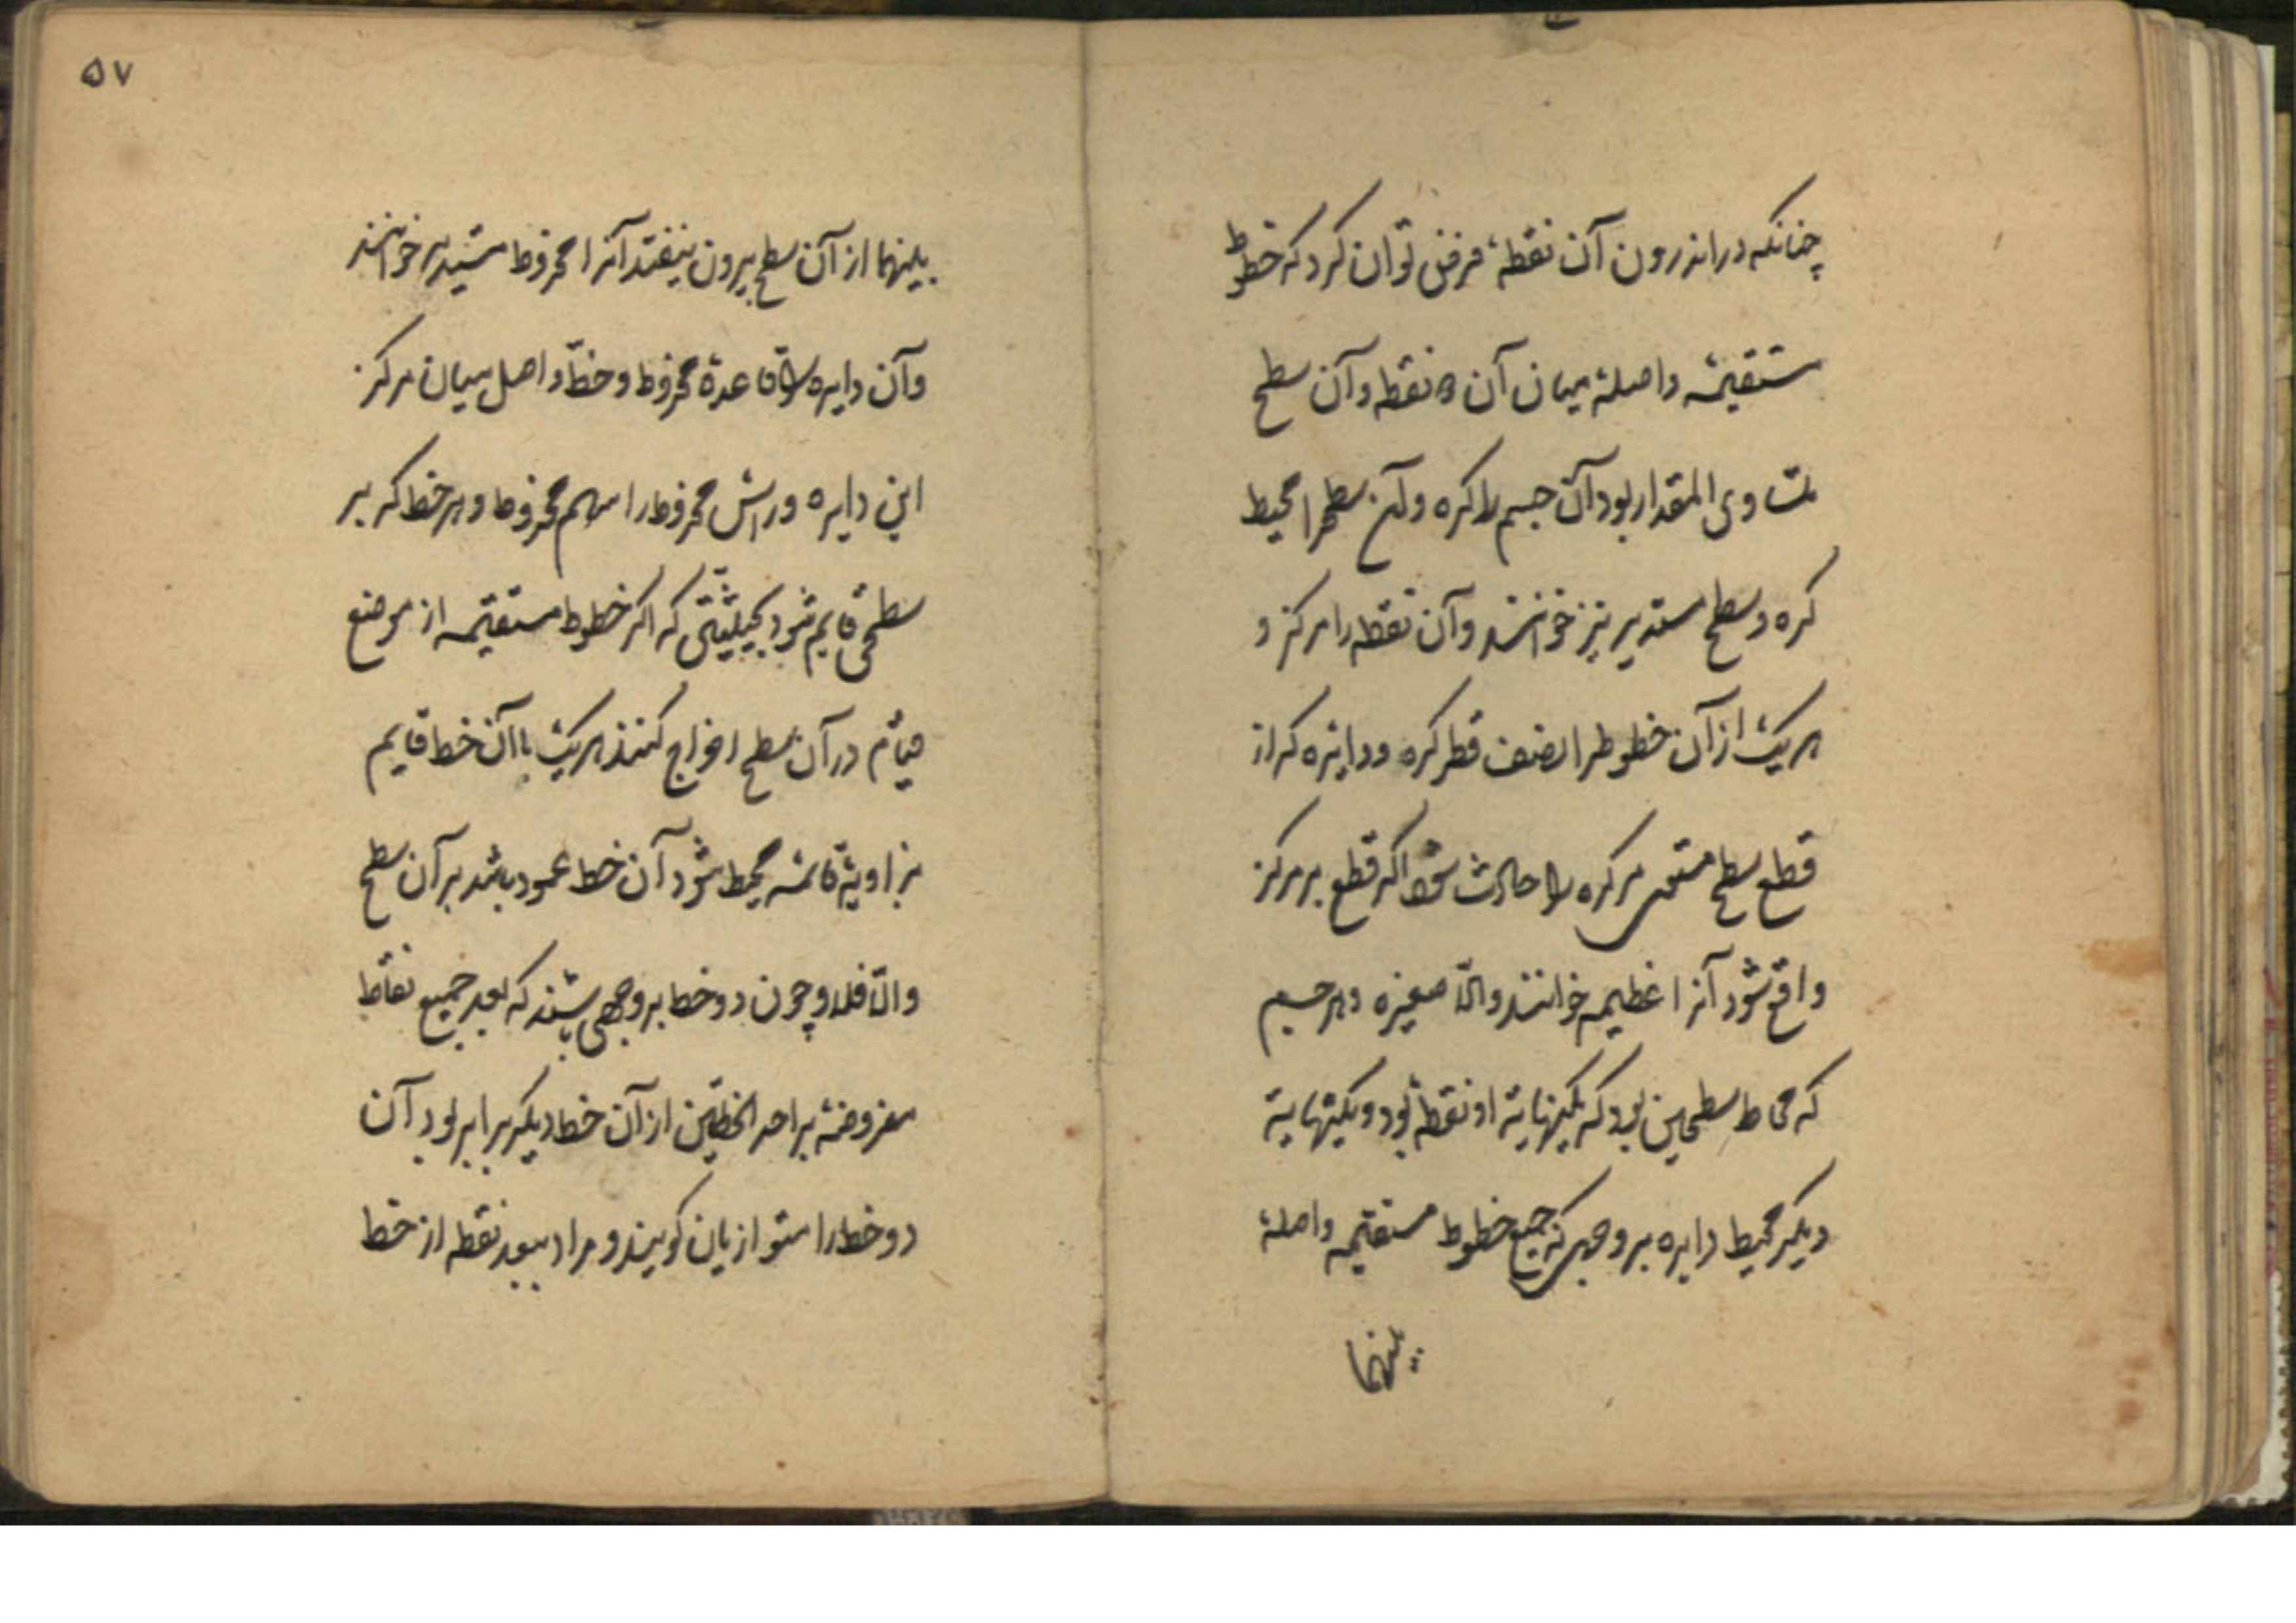 چنانکه در اندرون آن نقطهٔ فرض توان کرد که خطوط
مستقیمه واصلهٔ میان آن نقطه و آن سطح
متساوی المقدار بود آن جسم را کره و آن سطح را محیط
کره و سطح مستدیر نیز خوانند و آن نقطه را مرکز و
هریک از آن خطوط را نصف قطر کره و دایره که از
قطع سطح مستوی مر کره را حادث شود اگر قطع بر مرکز
واقع شود آنرا عظیمه خوانند والّا صغیره و هر جسم
که محاط سطحین بود که یکنهایة او نقطه بود و یکنهایة
دیگر محیط دایره بر وجهی که جمیع خطوط مستقیمه واصلهٔ
بینهما
۵۷
بینهما از آن سطح بیرون نیفتد آنرا مخروط مستدیر خوانند
و آن دایره را قاعدهٔ مخروط و خطّ واصل میان مرکز
این دایره و رأس مخروط را سهم مخروط و هر خط که بر
سطحی قایم شود بحیثیتی که اگر خطوط مستقیمه از موضع
قیام در آن سطح اخراج کنند هریک با آن خط قایم
بزاویهٔ قائمه محیط شود آن خط عمود باشد بر آن سطح
والّا فلا و چون دو خط بر وجهی باشند که بعد جمیع نقاط
مفروضهٔ بر احد الخطّین از آن خط دیگر برابر بود آن
دو خط را متوازیان گویند و مراد ببعد نقطه از خط